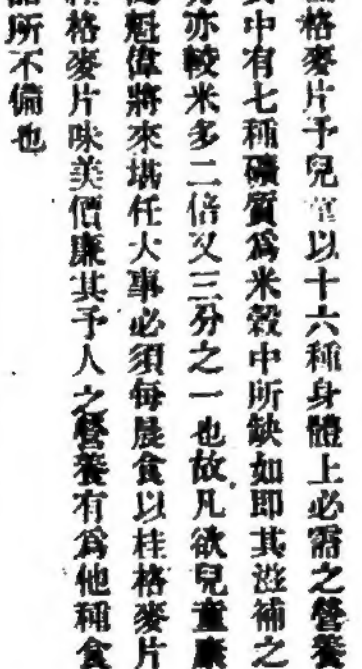 格麥片予兒童以十六種身體上必需之營養
中有七種礦質爲米穀中所缺如即其滋補之
亦較米多二倍又三分之一也故凡欲兒童康
魁偉將來堪任大事必須每晨食以桂格麥片
格麥片味美價廉其予人之營養有爲他種食
所不備也